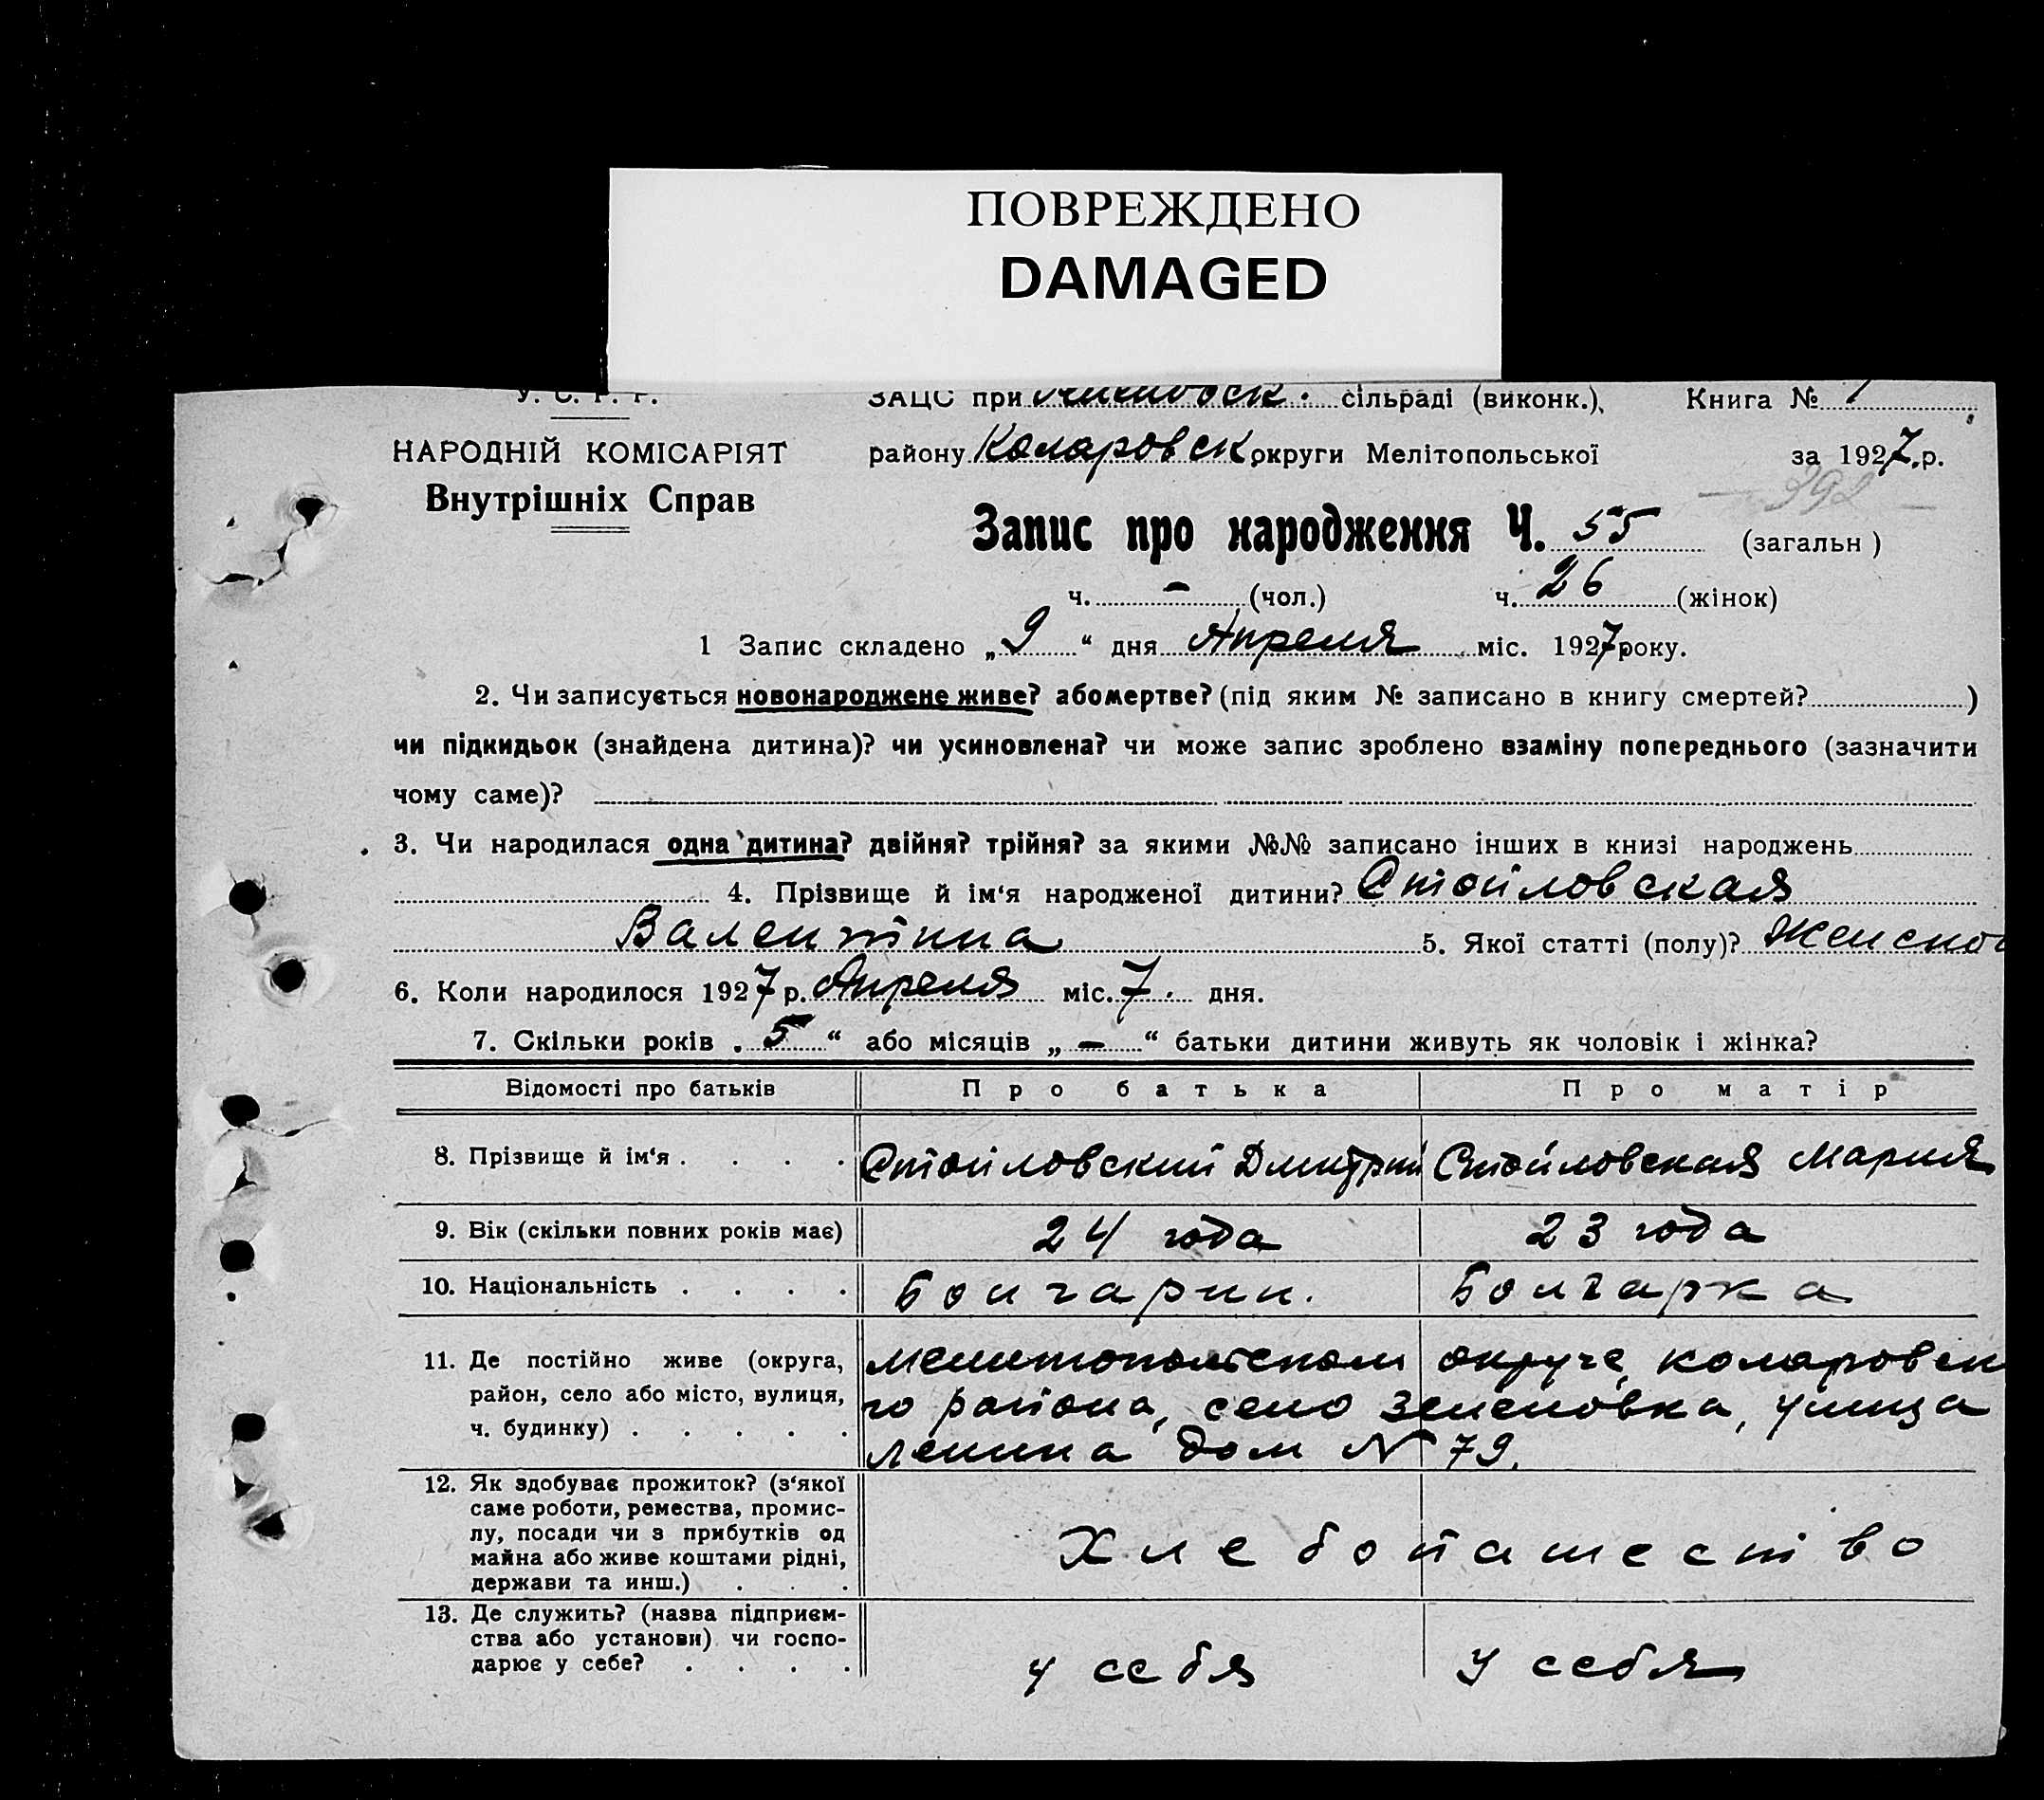 ПОВРЕЖДЕНО
DAMAGED
У. С. Р. Р.
ЗАЦС при сільраді (виконк.), Книга № 1
НАРОДНІЙ КОМІСАРІЯТ
Внутрішніх Справ
району Коларовск округи Мелітопольської за 1927 р.
392
Запис про народження Ч. 55 (загальн)
ч. — (чол.) ч. 26 (жінок)
1 Запис складено „9“ дня Апреля міс. 1927 року.
2. Чи записується новонароджене живе? або мертве? (під яким № записано в книгу смертей? )
чи підкидьок (знайдена дитина)? чи усиновлена? чи може запис зроблено взаміну попереднього (зазначити
чому саме)?
3. Чи народилася одна дитина? двійня? трійня? за якими №№ записано інших в книзі народжень
4. Прізвище й ім‘я народженої дитини? Стойловская
Валентина 5. Якої статті (полу)? Женско
6. Коли народилося 1927 р. Апреля міс. 7 дня.
7. Скільки років „5“ або місяців „—“ батьки дитини живуть як чоловік і жінка?
Відомості про батьків Про батька Про матір
8. Прізвище й ім‘я . . . . Стойловский Дмитрий Стойловская Мария
9. Вік (скільки повних років має) 24 года 23 года
10. Національність . . . . Болгарин. Болгарка
11. Де постійно живе (округа, Мелитопольском округе, коларовск
район, село або місто, вулиця, го района, село Зеленовка, улица
ч. будинку) . . . . . Ленина дом № 79.
12. Як здобуває прожиток? (з‘якої
саме роботи, ремества, промис-
лу, посади чи з прибутків од
майна або живе коштами рідні,
держави та инш.) . . .
Хлебопашество
13. Де служить? (назва підприєм-
ства або установи) чи госпо-
дарює у себе? . . . .
у себя у себя